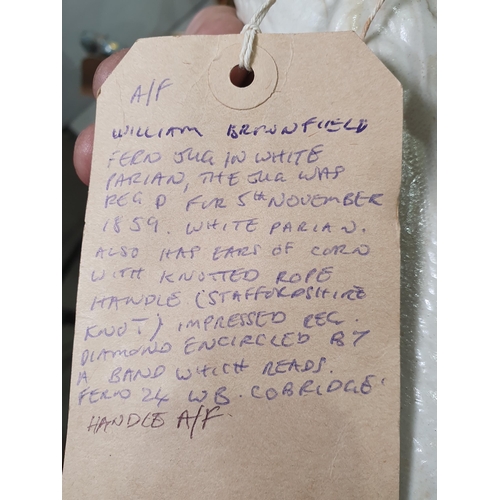 A/F
WILLIAM BROWNFIELD
FERN JUG IN WHITE
PARIAN, THE JUG WAS
REG D FOR 5TH NOVEMBER
1859. WHITE PARIAN.
ALSO HAS EARS OF CORN
WITH KNOTTED ROPE
HANDLE (STAFFORDSHIRE
KNOT) IMPRESSED REG.
DIAMOND ENCIRCLED BY
A BAND WHICH READS.
FERN 24 WB. COBRIDGE.
HANDLE A/F.